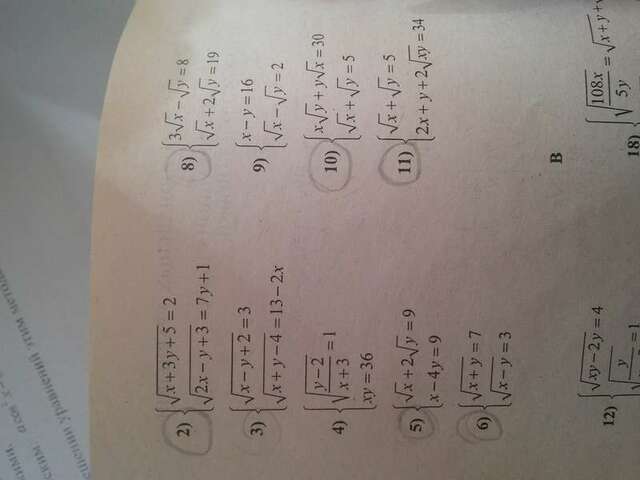 2) {√(x+3y+5) = 2
√(2x−y+3) = 7y+1
3) {√(x−y+2) = 3
√(x+y−4) = 13−2x
4) {√((y−2)/(x+3)) = 1
xy = 36
5) {√x + 2√y = 9
x − 4y = 9
6) {√(x+y) = 7
√(x−y) = 3
8) {3√x − √y = 8
√x + 2√y = 19
9) {x − y = 16
√x − √y = 2
10) {x√y + y√x = 30
√x + √y = 5
11) {√x + √y = 5
2x + y + 2√(xy) = 34
В
12) {√(xy−2y) = 4
18)
√(108x/5y) = √(x+y